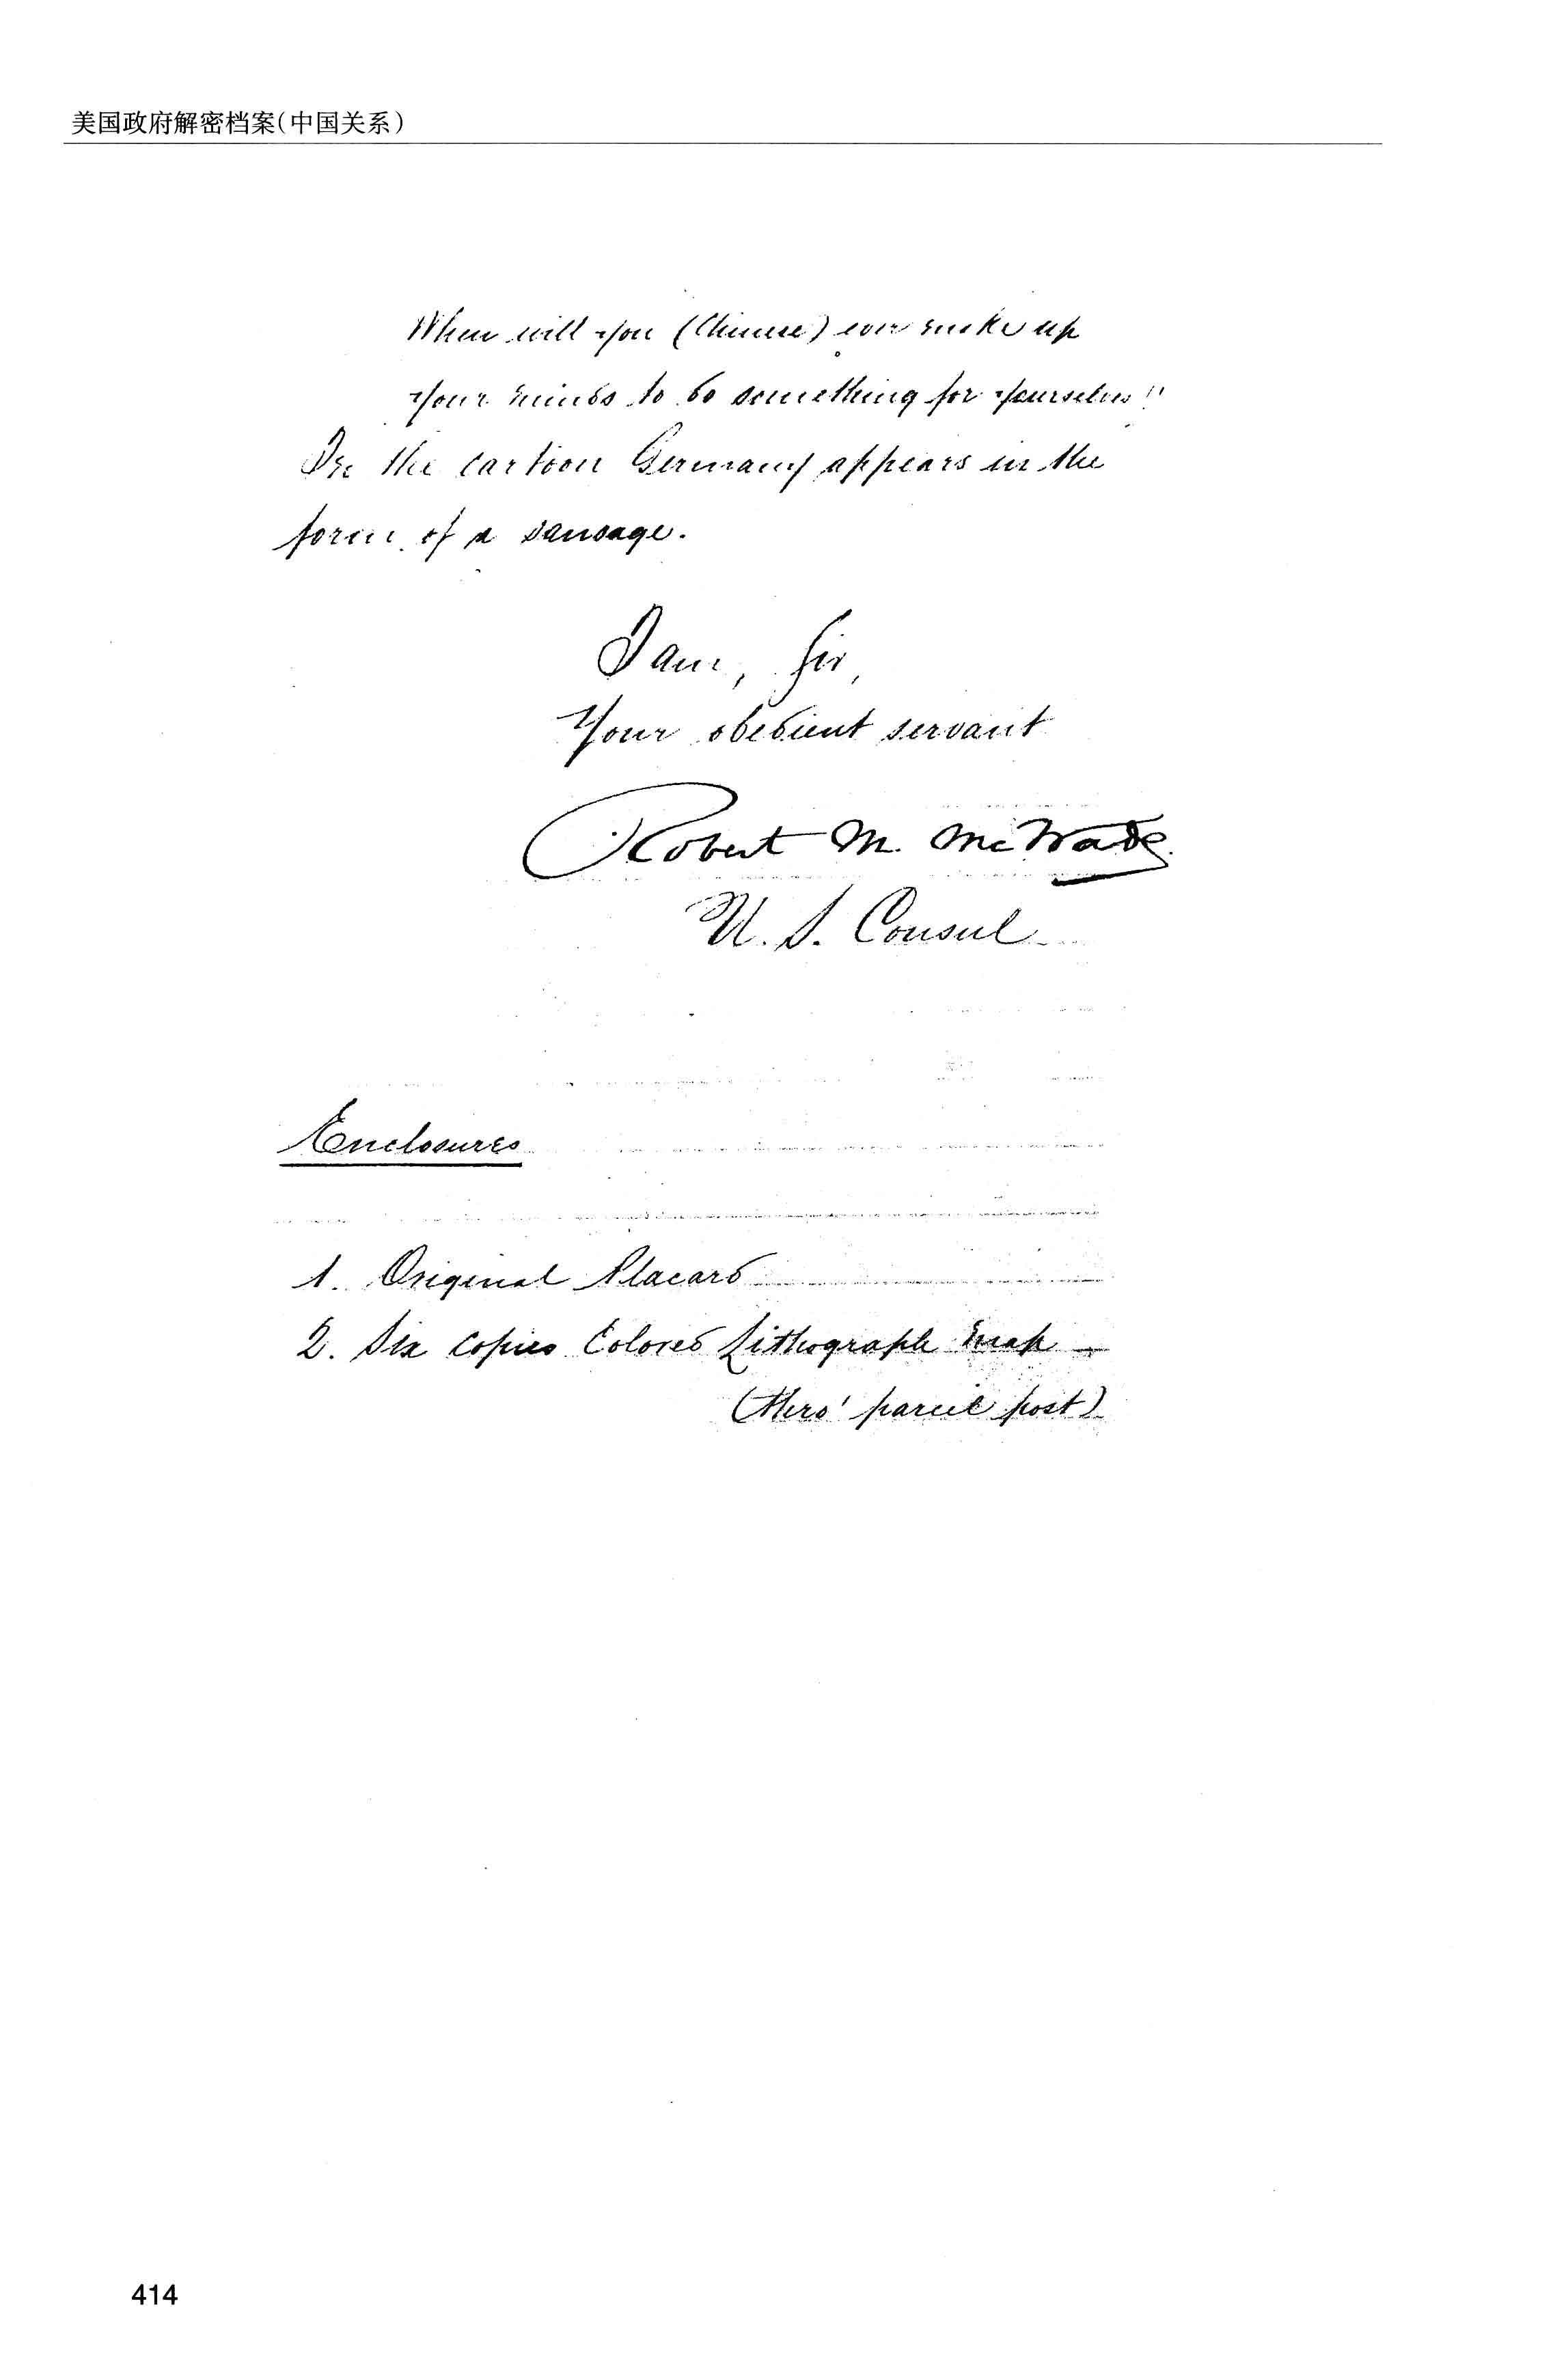 美国政府解密档案(中国关系)
When will you (Chinese) ever make up
your minds to do something for yourselves!!
In the cartoon Germany appears in the
form of a sausage.
I am, Sir,
Your obedient servant
Robert M. McWade
U. S. Consul
Enclosures
1. Original Placard
2. Six copies Colored Lithograph Map
(thro' parcel post)
414